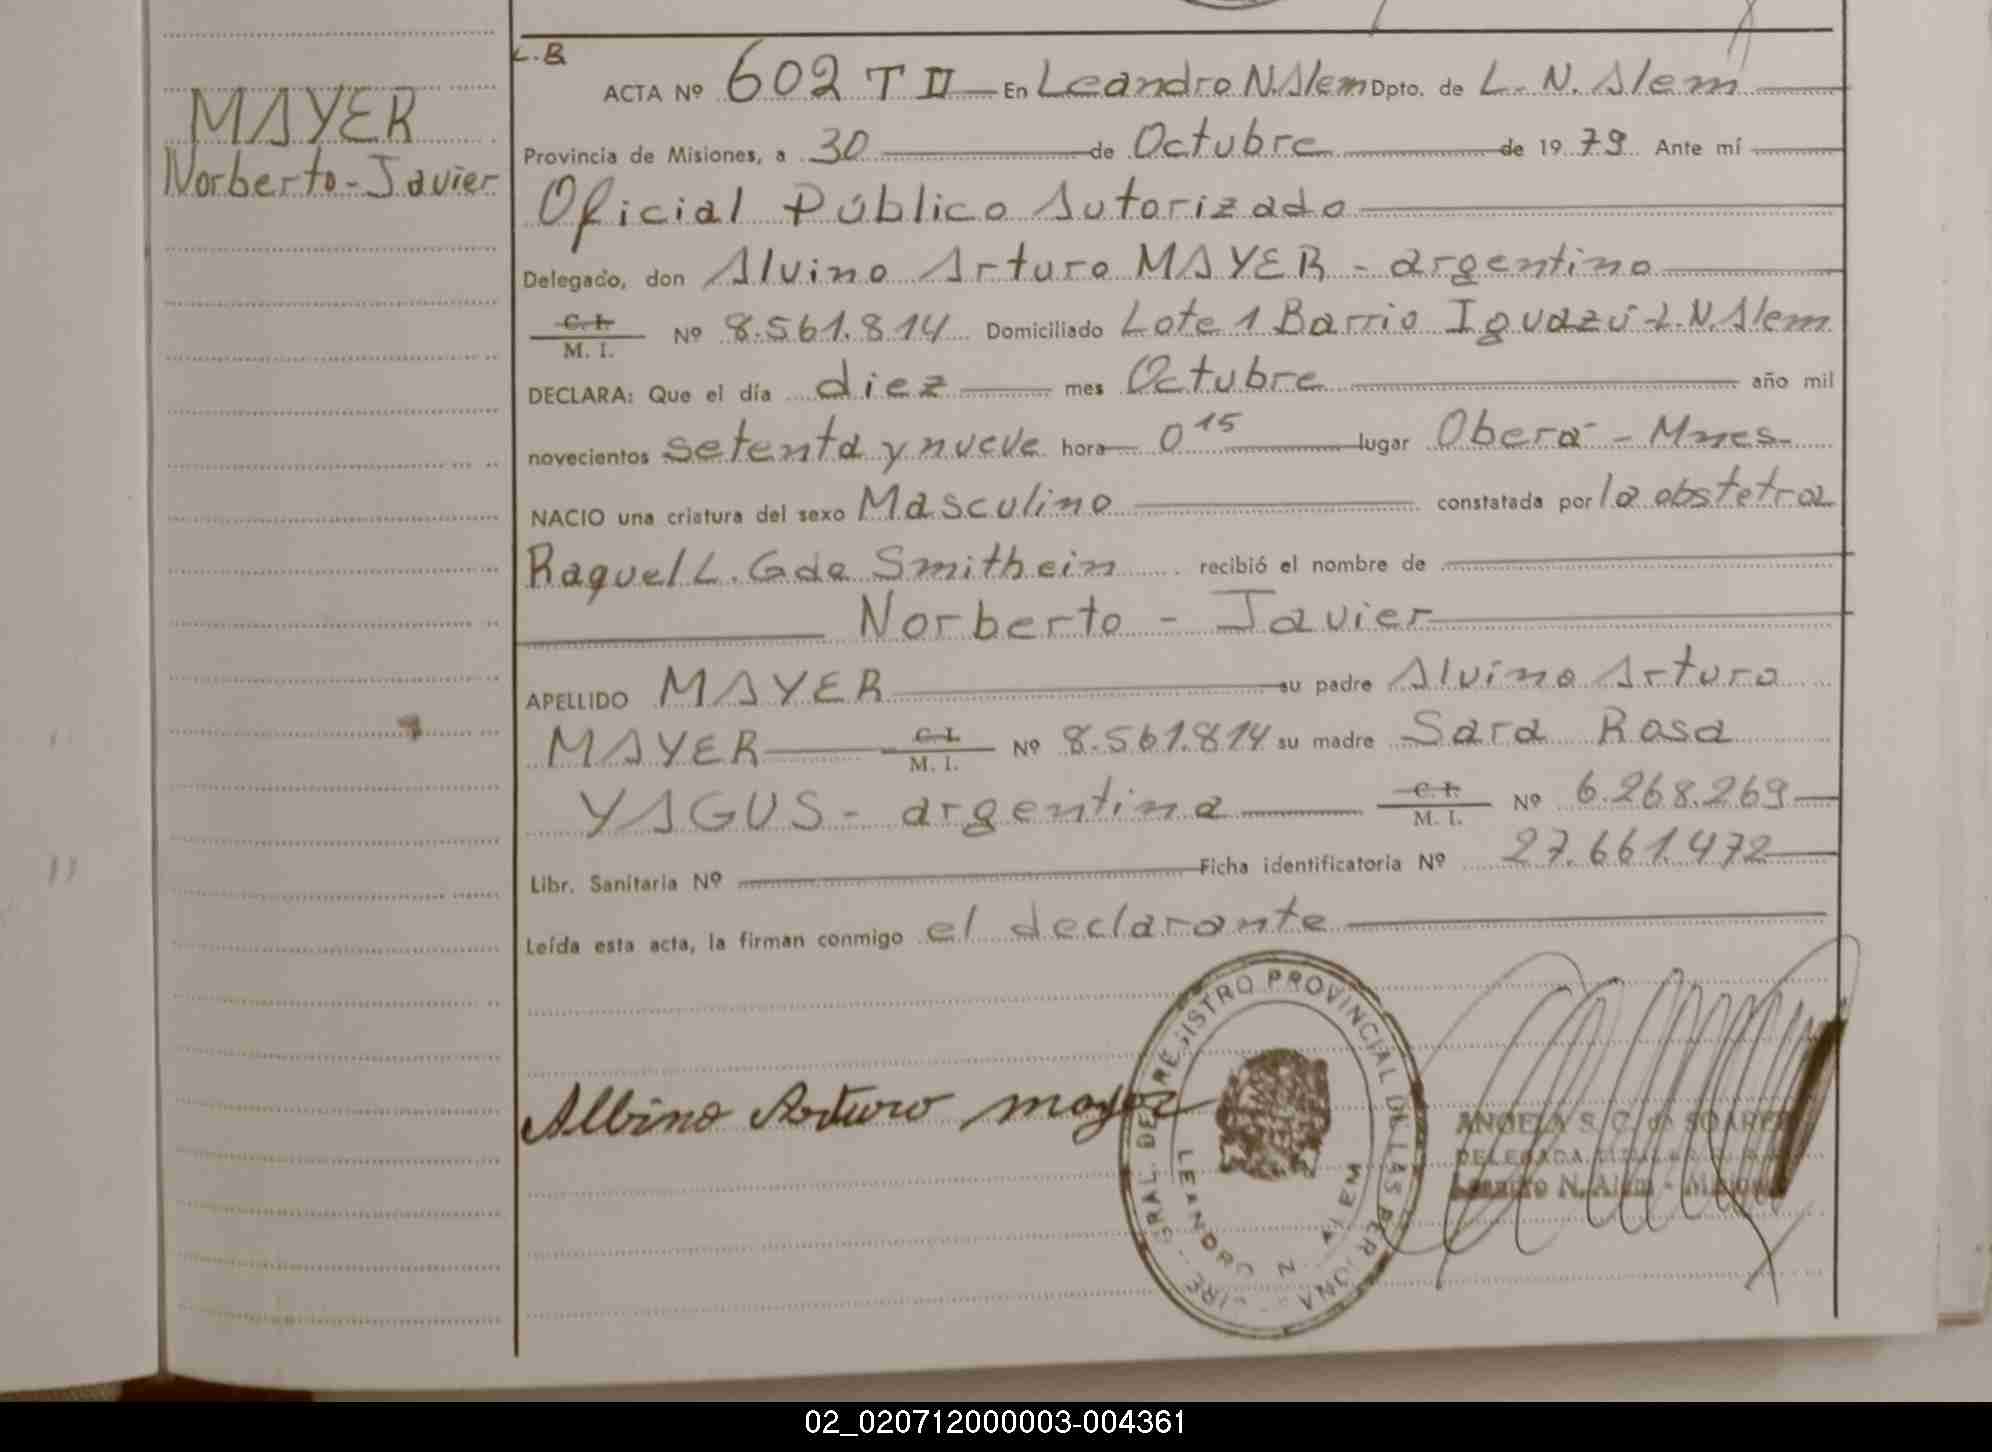 L.B
MAYER
Norberto-Javier
ACTA Nº 602 T II En Leandro N. Alem Dpto. de L. N. Alem
Provincia de Misiones, a 30 de Octubre de 1979 Ante mí
Oficial Público Autorizado
Delegado, don Alvino Arturo MAYER - argentino
C. I.
M. I. Nº 8.561.814 Domiciliado Lote 1 Barrio Iguazú-L.N.Alem
DECLARA: Que el día diez mes Octubre año mil
novecientos setenta y nueve hora 0 15 lugar Oberá - Mnes-
NACIO una criatura del sexo Masculino constatada por la obstetra
Raquel L. G de Smithein recibió el nombre de
Norberto - Javier
APELLIDO MAYER su padre Alvino Arturo
MAYER C. I. M. I. Nº 8.561.814 su madre Sara Rosa
YAGUS - argentina C. I. M. I. Nº 6.268.269
Libr. Sanitaria Nº Ficha identificatoria Nº 27.661.472
Leída esta acta, la firman conmigo el declarante
Albino Arturo mayer
GRAL. DE REGISTRO PROVINCIAL DE LAS PERSONAS
LEANDRO N. ALEM
ANGELA S. C. de SOAREZ
DELEGADA TITULAR
Leandro N. Alem - Misiones
02_020712000003-004361